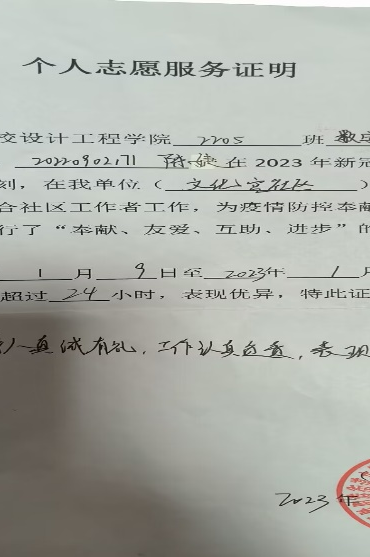 个人志愿服务证明
校设计工程学院 2205 班 数字
20220902171 在2023年新冠
刻，在我单位（ 文化宫社区 ）
合社区工作者工作，为疫情防控奉献
行了“奉献、友爱、互助、进步”的
1 月 9 日至 2023年 1 月
超过 24 小时，表现优异，特此证
人真诚有礼，工作认真负责，表现
2023 年